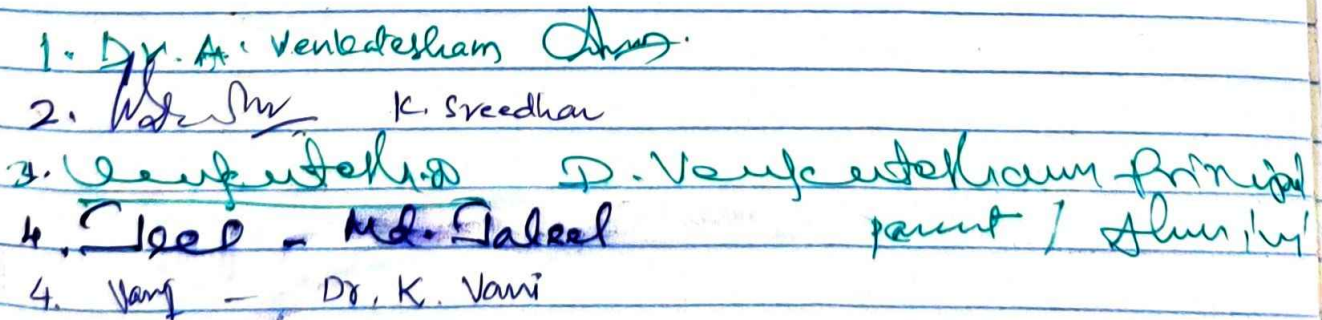 1. Dr. A. Venkatesham
2. K. Sreedhar
3. D. Venkatesham Principal
4. Jaleel - Md. Jaleel parent / Alumini
4. Vani - Dr. K. Vani